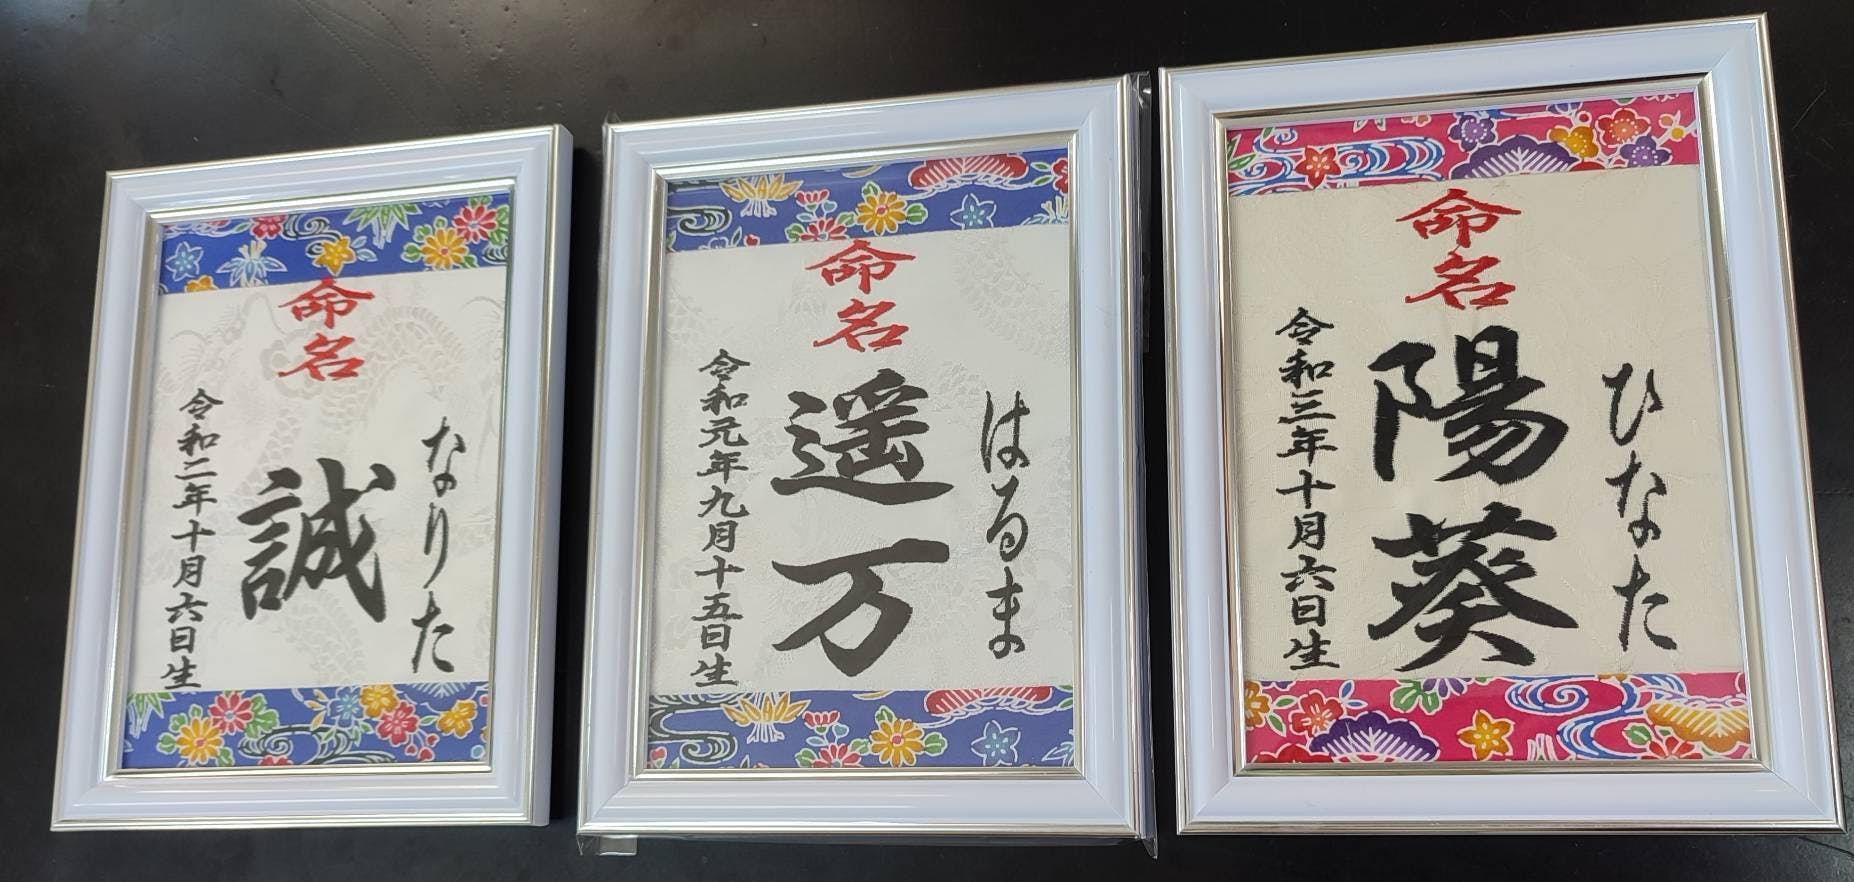 命名
なりた
誠
令和二年十月六日生
命名
はるま
遥万
令和元年九月十五日生
命名
ひなた
陽葵
令和三年十月六日生